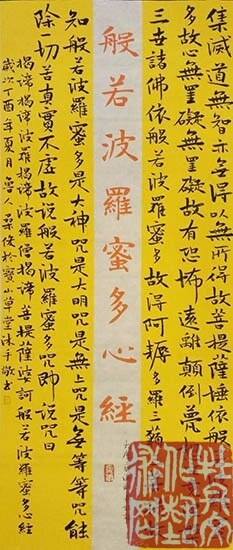 集滅道無智亦無得以無所得故菩提薩埵依般
多故心無罣礙無罣礙故有恐怖遠離顛倒夢
三世諸佛依般若波羅蜜多故得阿耨多羅三藐
般若波羅蜜多心經
知般若波羅蜜多是大神咒是大明咒是無上咒是無等等咒能
除一切苦真實不虛故說般若波羅蜜多咒即說咒曰
揭諦揭諦波羅揭諦波羅僧揭諦菩提薩婆訶般若波羅蜜多心經
歲次丁酉年夏月魯人於寶山草堂沐手敬書